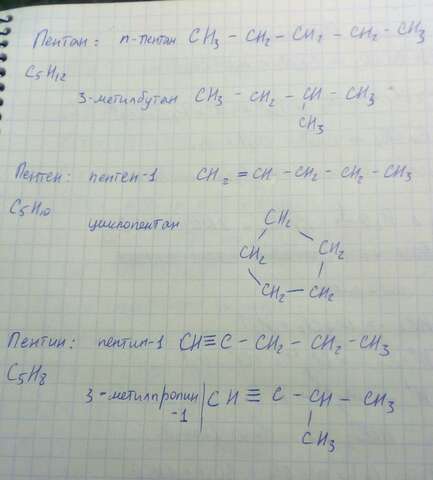 Пентан: n-пентан CH3 - CH2 - CH2 - CH2 - CH3
C5H12
3-метилбутан CH3 - CH2 - CH - CH3
CH3
Пентен: пентен-1 CH2 = CH - CH2 - CH2 - CH3
C5H10
циклопентан
CH2
CH2 CH2
CH2 - CH2
Пентин: пентин-1 CH≡C - CH2 - CH2 - CH3
C5H8
3-метилпропин CH ≡ C - CH - CH3
-1
CH3